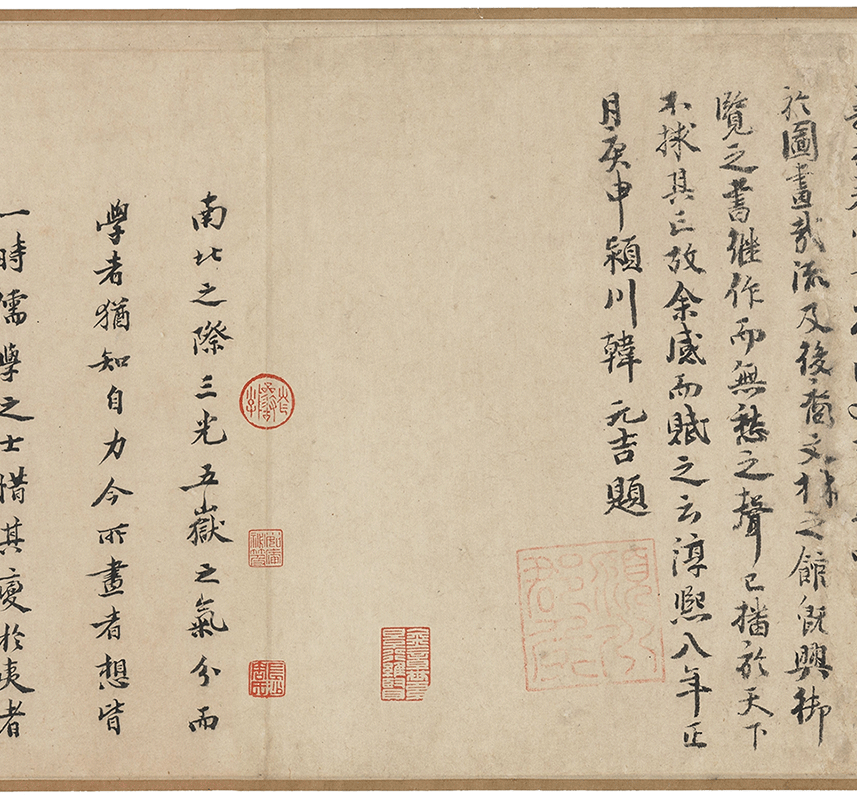 於圖畫哉流及後裔文林之館既興御
覽之書繼作而無愁之聲已播於天下
不捄其亡故余感而賦之云淳熙八年正
月庚申潁川韓元吉題
南北之際三光五嶽之氣分而
學者猶知自力今所畫者想皆
一時儒學之士惜其變於夷者